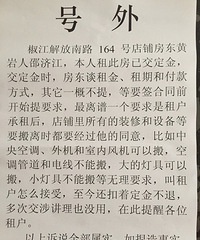 号 外
椒江解放南路 164 号店铺房东黄
岩人邵济江，本人租此房已交定金，
交定金时，房东谈租金、租期和付款
方式，其它一概不提，等要签合同前
开始提要求，最离谱一个要求是租户
承租后，店铺里所有的装修和设备等
要搬离时都要经过他的同意，比如中
央空调、外机和室内风机可以搬，空
调管道和电线不能搬，大的灯具可以
搬，小灯具不能搬等无理要求，叫租
户怎么接受，至今还扣着定金不退，
多次交涉讲理也没用，在此提醒各位
租户。
以上诉说全部属实，如捏造事实